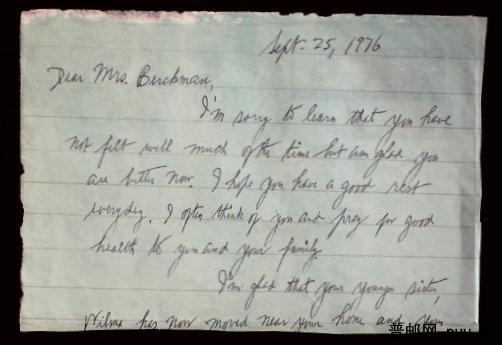 Sept. 25, 1976
Dear Mrs. Berckman,
I'm sorry to learn that you have
not felt well much of the time but am glad you
are better now. I hope you have a good rest
everyday. I often think of you and pray for good
health to you and your family.
I'm glad that your younger sister,
Wilma has now moved near your home and
普邮网